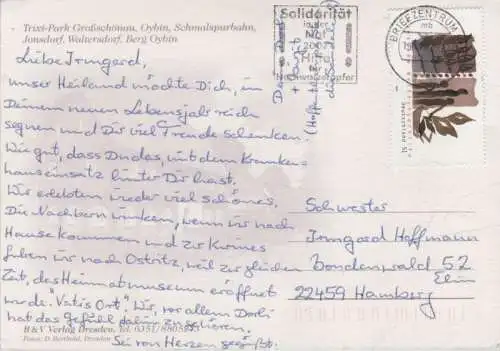 Trixi-Park Großschönau, Oybin, Schmalspurbahn,
Jonsdorf, Waltersdorf, Berg Oybin
Liebe Irmgard,
unser Heiland möchte Dich, in
Deinem neuen Lebensjahr reich
segnen und Dir viel Freude schenken.
Wie gut, dass Du das, mit dem Kranken-
hauseinsatz hinter Dir hast.
Wir erlebten wieder viel schönes,
Die Nachbarn winken, wenn wir nach
Hause kommen und zur Kirmes
fuhren wir nach Ostritz, weil zur gleichen
Zeit, das Heimatmuseum eröffnet
wurde. "Vatis Ort". Wir, vor allem
hat das Gefühl dahin zu gehören.
Sei von Herzen gegrüßt.
B & V Verlag Dresden, Tel. 0351/
Fotos: D. Berthold, Dresden
Solidarität
BRIEFZENTRUM
mb
Schwester
Irmgard Hoffmann
Bondenwald 52
Elim
22459 Hamburg